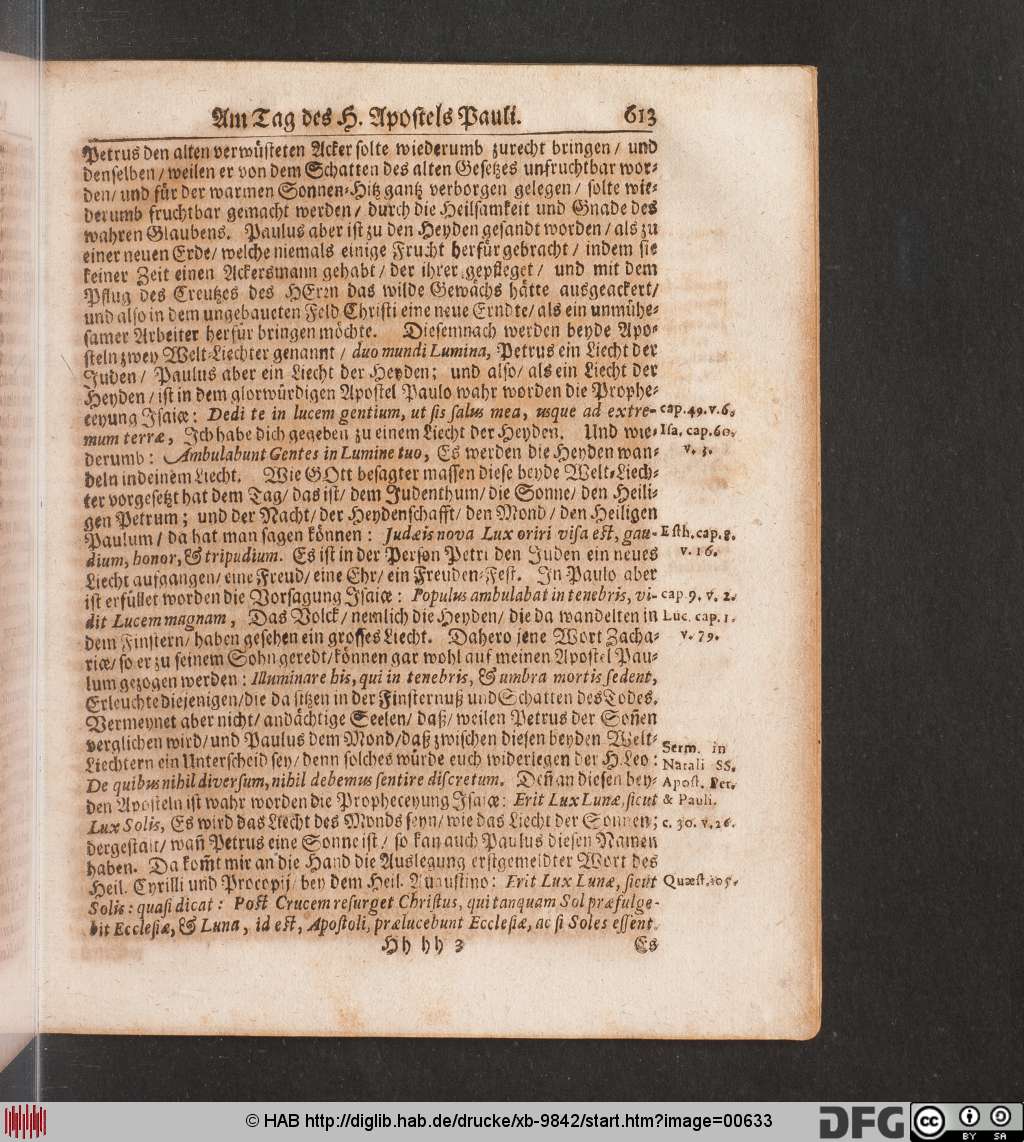 Am Tag des H. Apostels Pauli. 613
Petrus den alten verwüsteten Acker solte wiederumb zurecht bringen / und
denselben / weilen er von dem Schatten des alten Gesetzes unfruchtbar wor-
den / und für der warmen Sonnen-Hitz gantz verborgen gelegen / solte wie-
derumb fruchtbar gemacht werden / durch die Heilsamkeit und Gnade des
wahren Glaubens. Paulus aber ist zu den Heyden gesandt worden / als zu
einer neuen Erde / welche niemals einige Frucht herfür gebracht / indem sie
keiner Zeit einen Ackersmann gehabt / der ihrer gepfleget / und mit dem
Pflug des Creutzes des HErrn das wilde Gewächs hätte ausgeackert /
und also in dem ungebaueten Feld Christi eine neue Erndte / als ein unmühe-
samer Arbeiter herfür bringen möchte. Diesemnach werden beyde Apo-
steln zwey Welt-Liechter genannt / duo mundi Lumina, Petrus ein Liecht der
Juden / Paulus aber ein Liecht der Heyden; und also / als ein Liecht der
Heyden / ist in dem glorwürdigen Apostel Paulo wahr worden die Prophe-
ceyung Isaiæ: Dedi te in lucem gentium, ut sis salus mea, usque ad extre- cap. 49. v. 6.
mum terræ, Ich habe dich gegeben zu einem Liecht der Heyden. Und wie- Isa. cap. 60.
derumb: Ambulabunt Gentes in Lumine tuo, Es werden die Heyden wan- v. 3.
deln in deinem Liecht. Wie GOtt besagter massen diese beyde Welt-Liech-
ter vorgesetzt hat dem Tag / das ist / dem Judenthum / die Sonne / den Heili-
gen Petrum; und der Nacht / der Heydenschafft / den Mond / den Heiligen
Paulum / da hat man sagen können: Judæis nova Lux oriri visa est, gau- Esth. cap. 8.
dium, honor, & tripudium. Es ist in der Person Petri den Juden ein neues v. 16.
Liecht aufgangen / eine Freud / eine Ehr / ein Freuden-Fest. In Paulo aber
ist erfüllet worden die Vorsagung Isaiæ: Populus ambulabat in tenebris, vi- cap. 9. v. 2.
dit Lucem magnam, Das Volck / nemlich die Heyden / die da wandelten in Luc. cap. 1.
dem Finstern / haben gesehen ein grosses Liecht. Dahero jene Wort Zacha- v. 79.
riæ / so er zu seinem Sohn geredt / können gar wohl auf meinen Apostel Pau-
lum gezogen werden: Illuminare his, qui in tenebris, & umbra mortis sedent,
Erleuchte diejenigen / die da sitzen in der Finsternuß und Schatten des Todes.
Vermeynet aber nicht / andächtige Seelen / daß / weilen Petrus der Soñen
verglichen wird / und Paulus dem Mond / daß zwischen diesen beyden Welt- Serm. in
Liechtern ein Unterscheid sey / denn solches würde euch widerlegen der H. Leo: Natali SS.
De quibus nihil diversum, nihil debemus sentire discretum. Deñ an diesen bey- Apost. Pet.
den Aposteln ist wahr worden die Propheceyung Isaiæ: Erit Lux Lunæ, sicut & Pauli.
Lux Solis, Es wird das Liecht des Monds seyn / wie das Liecht der Sonnen; c. 30. v. 26.
dergestalt / wañ Petrus eine Sonne ist / so kan auch Paulus diesen Namen
haben. Da kom̃t mir an die Hand die Auslegung erstgemeldter Wort des
Heil. Cyrilli und Procopij / bey dem Heil. Augustino: Erit Lux Lunæ, sicut Quæst. 105.
Solis: quasi dicat: Post Crucem resurget Christus, qui tanquam Sol præfulge-
bit Ecclesiæ, & Luna, id est, Apostoli, prælucebunt Ecclesiæ, ac si Soles essent.
Hh hh 3 Es
© HAB http://diglib.hab.de/drucke/xb-9842/start.htm?image=00633
DFG
cc BY SA